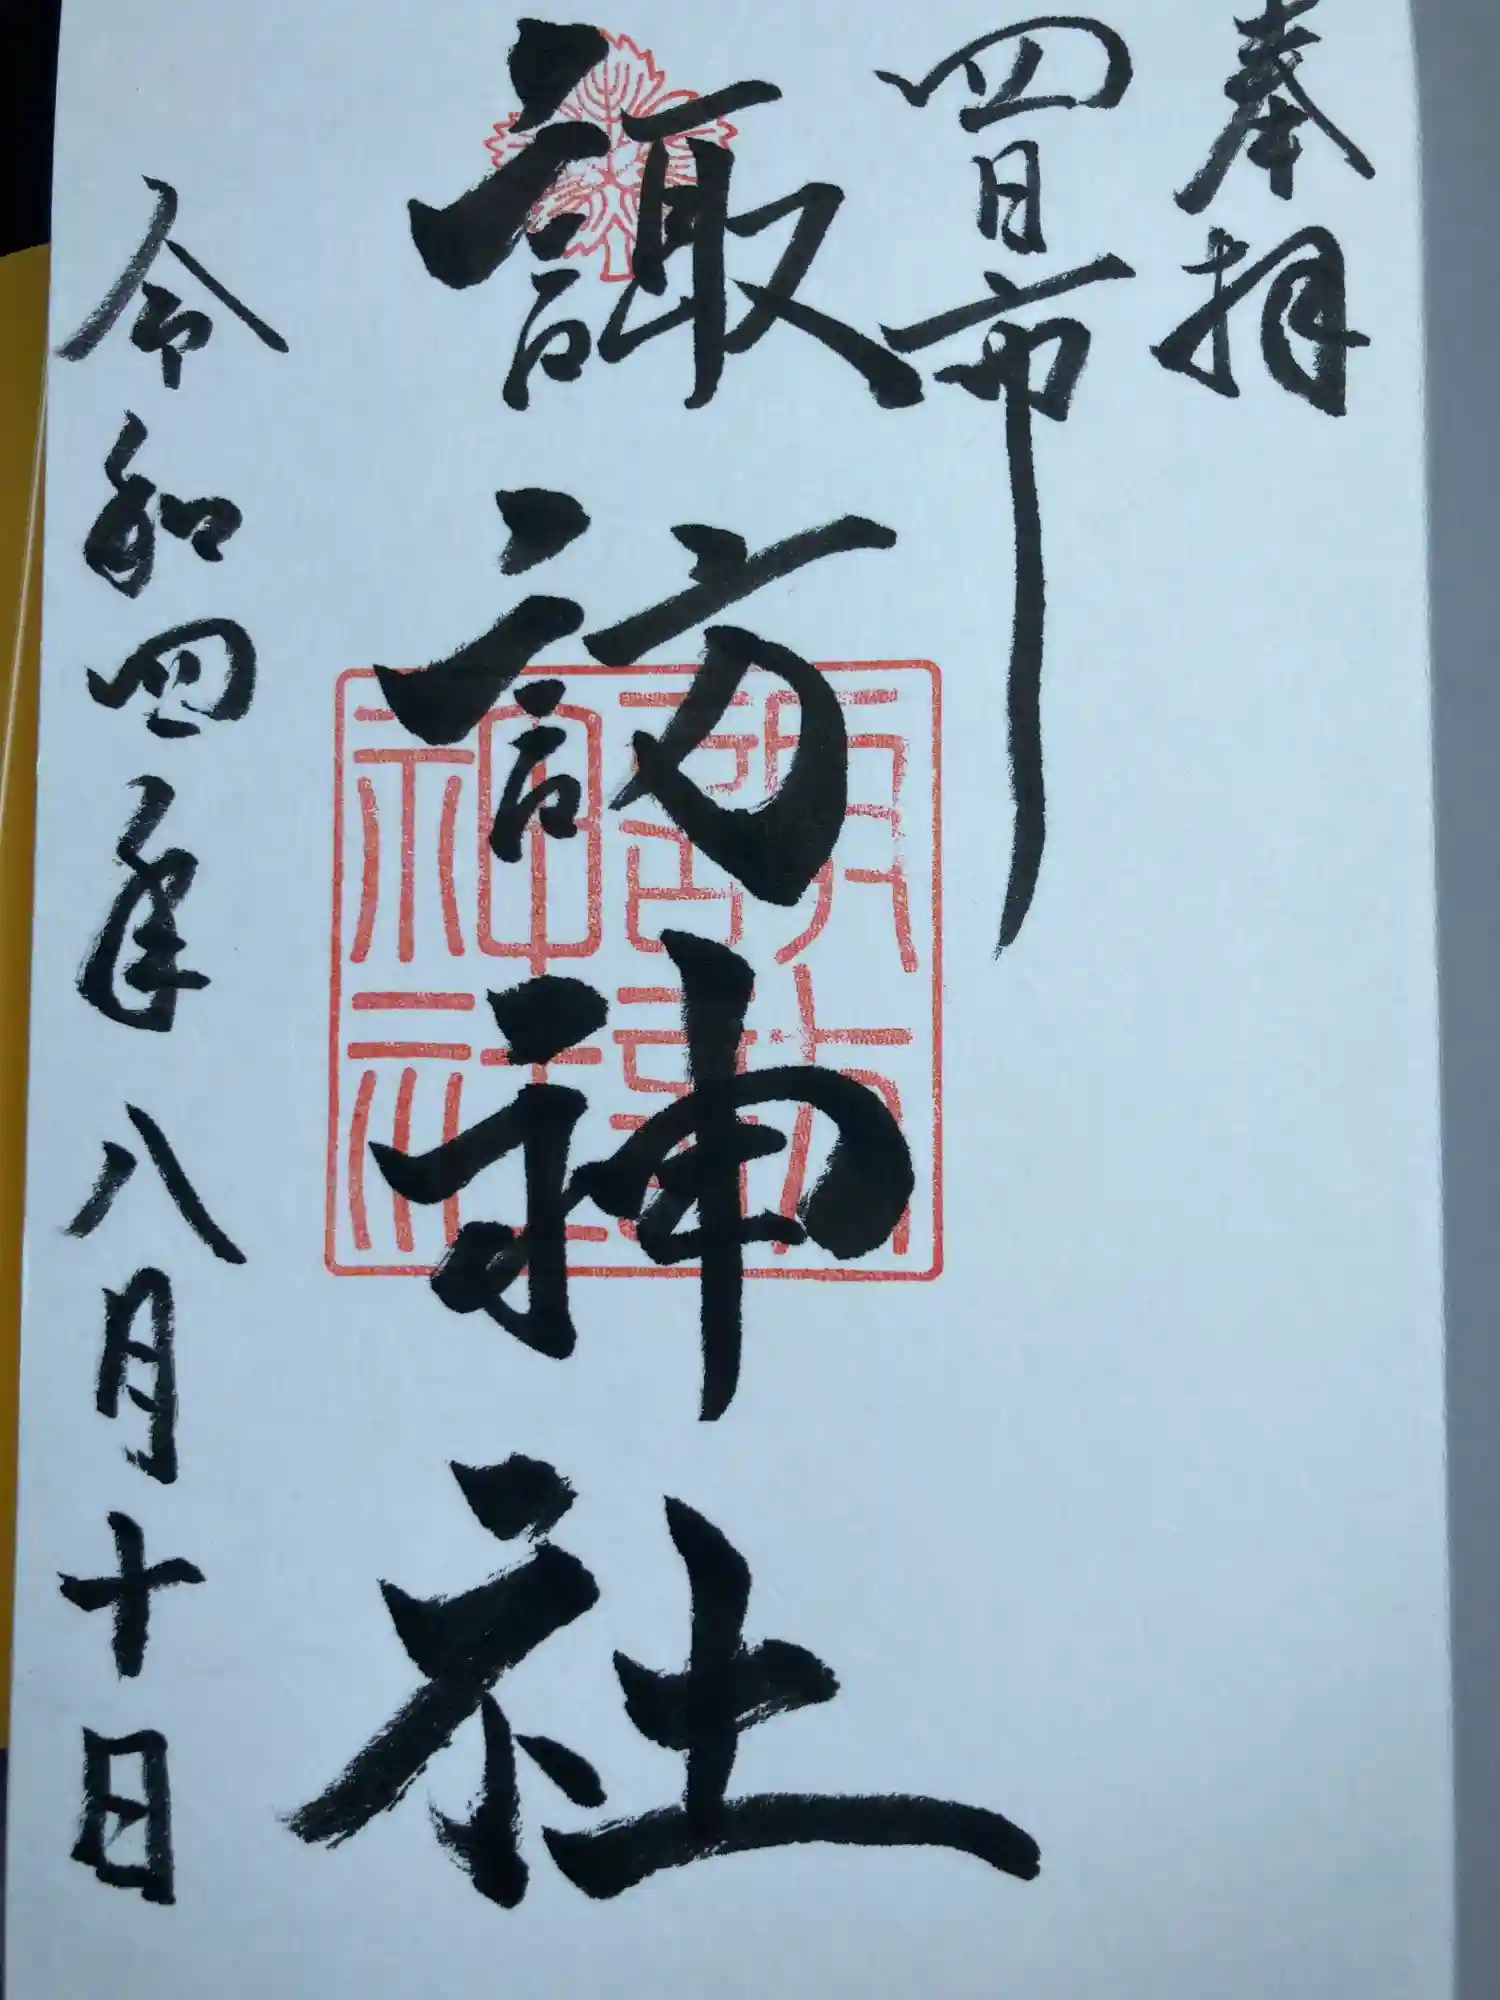 奉拝
四日市
諏訪神社
令和四年八月十日
諏訪
神社